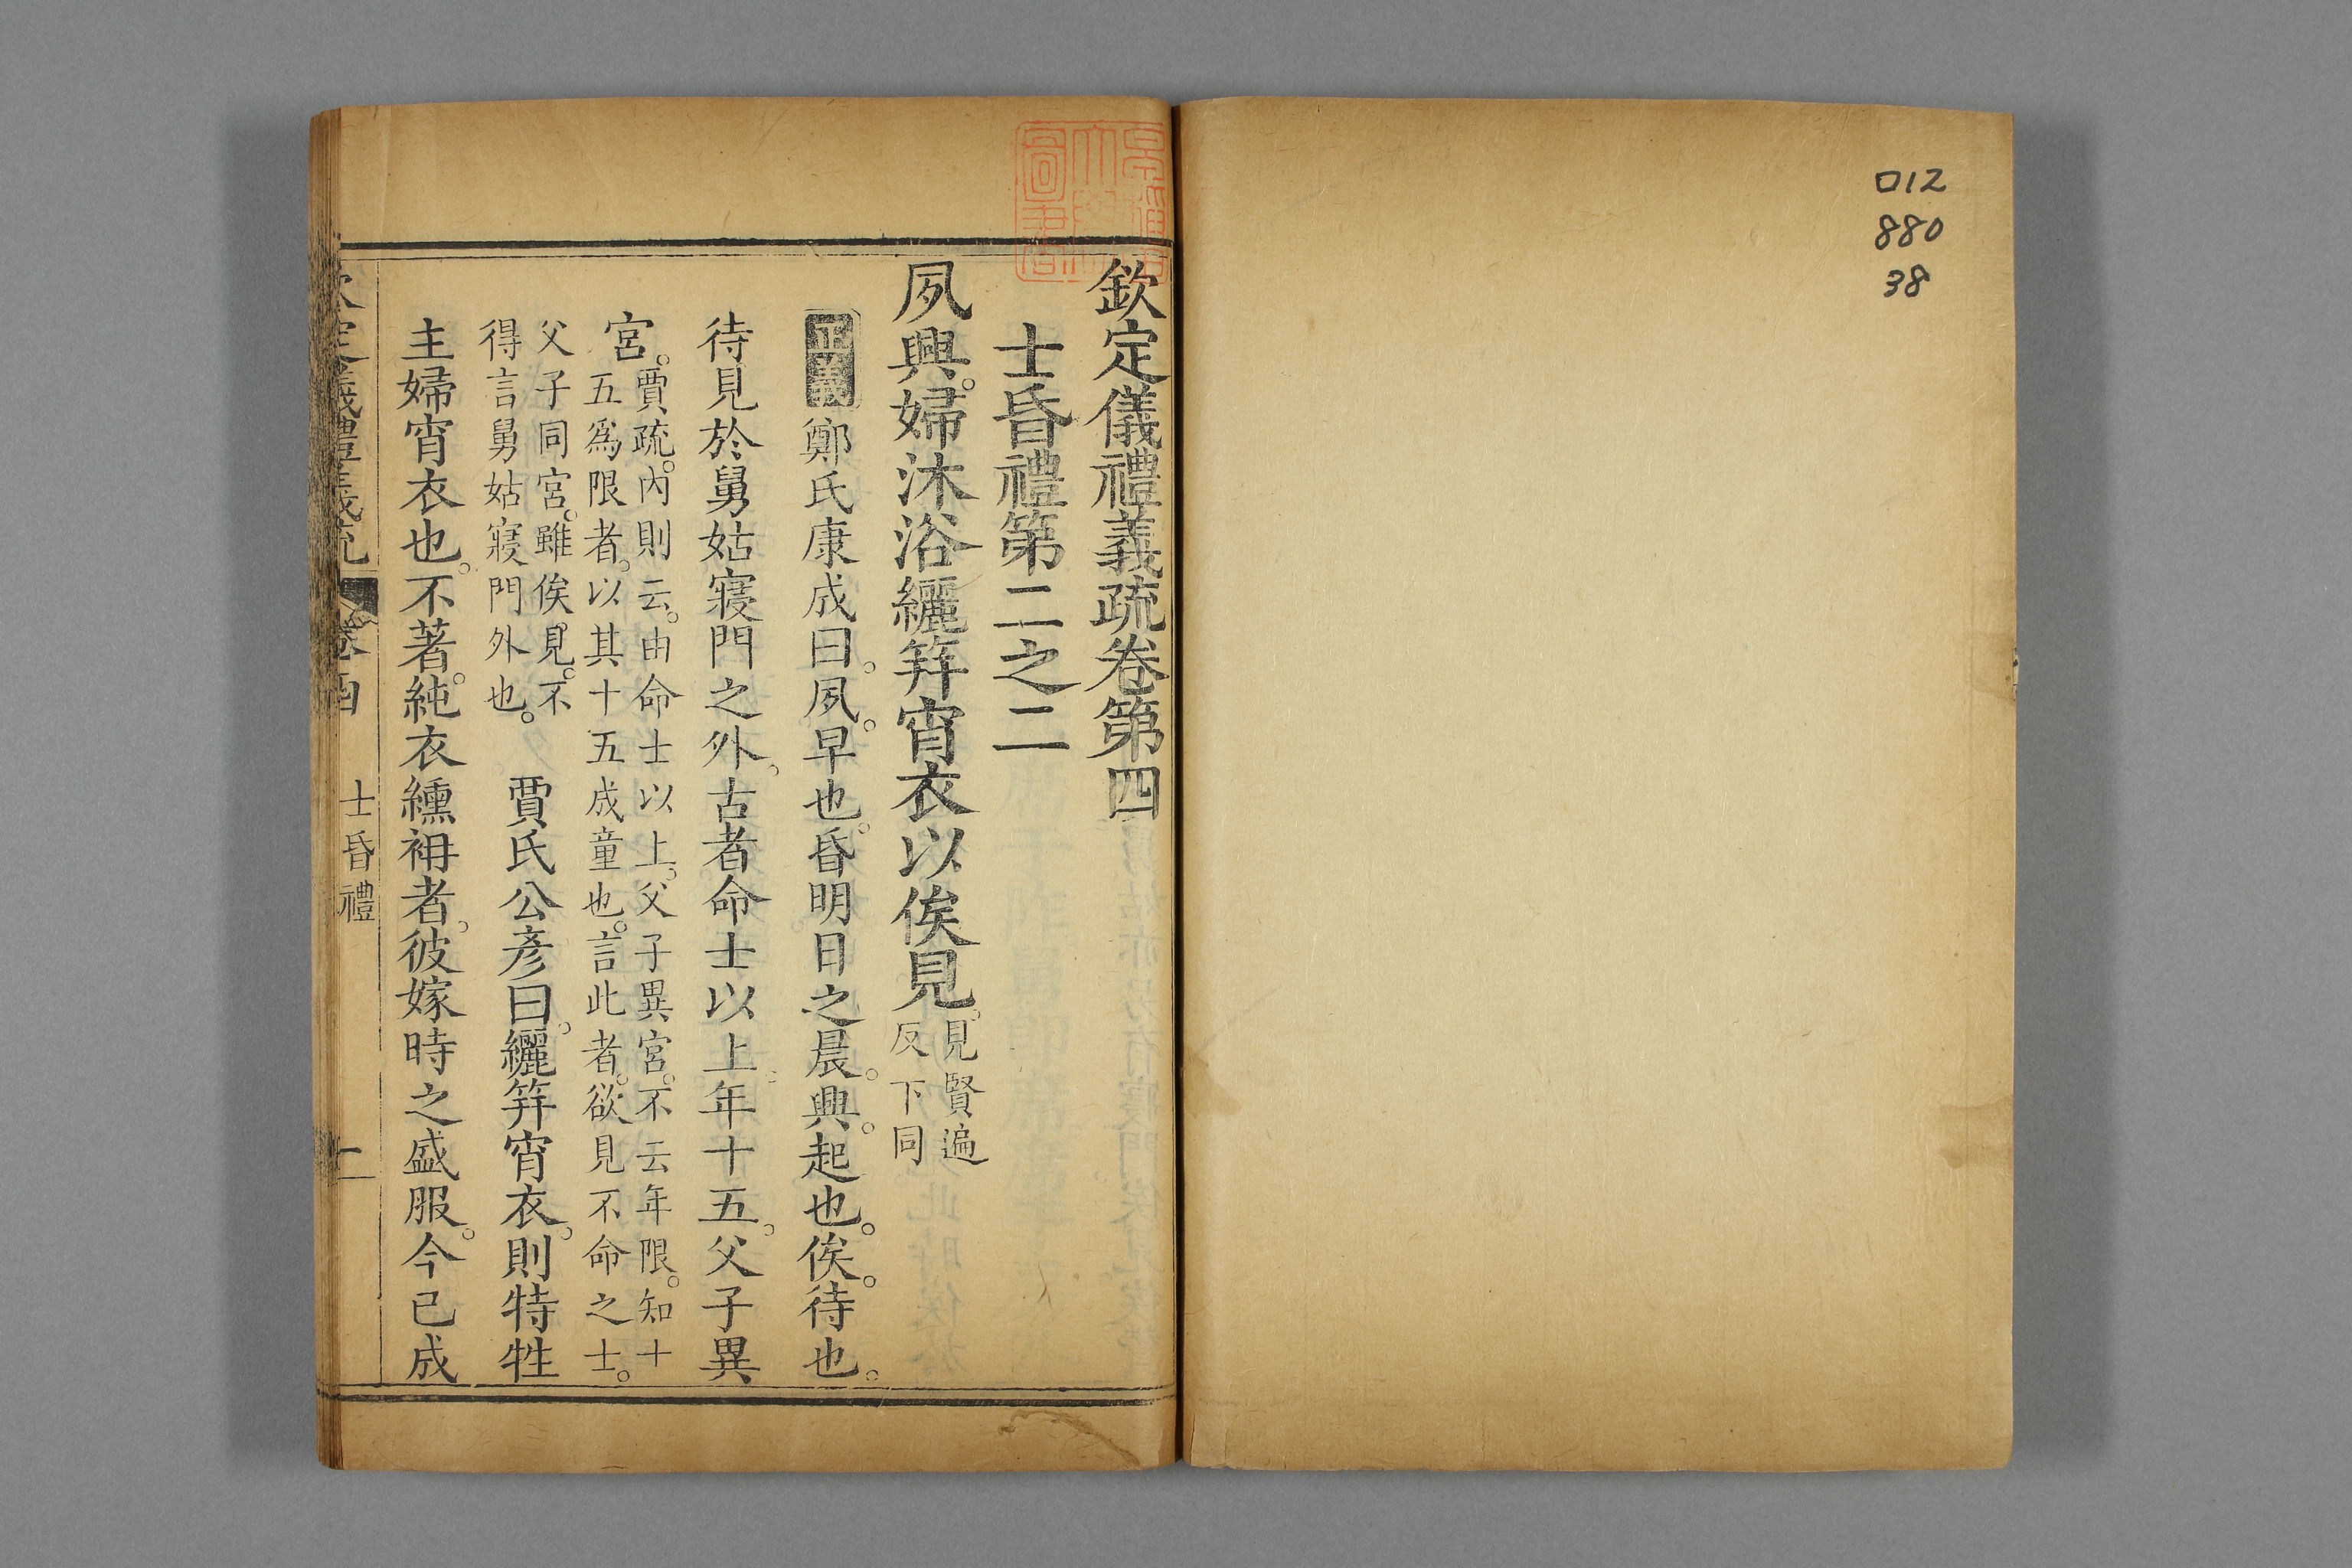 012
880
38
欽定儀禮義疏卷第四
士昏禮第二之二
夙興。婦沐浴纚笄宵衣以俟見。見賢遍
反下同
正義鄭氏康成曰。夙。早也。昏明日之晨。興。起也。俟。待也。
待見於舅姑寢門之外。古者命士以上。年十五。父子異
宮。賈疏。內則云。由命士以上。父子異宮。不云年限。知十
五爲限者。以其十五成童也。言此者。欲見不命之士。
父子同宮。雖俟見。不
得言舅姑寢門外也。
賈氏公彥曰。纚笄宵衣。則特牲
主婦宵衣也。不著。純衣纁袡者。彼嫁時之盛服。今已成
欽定儀禮義疏
卷四
士昏禮
一